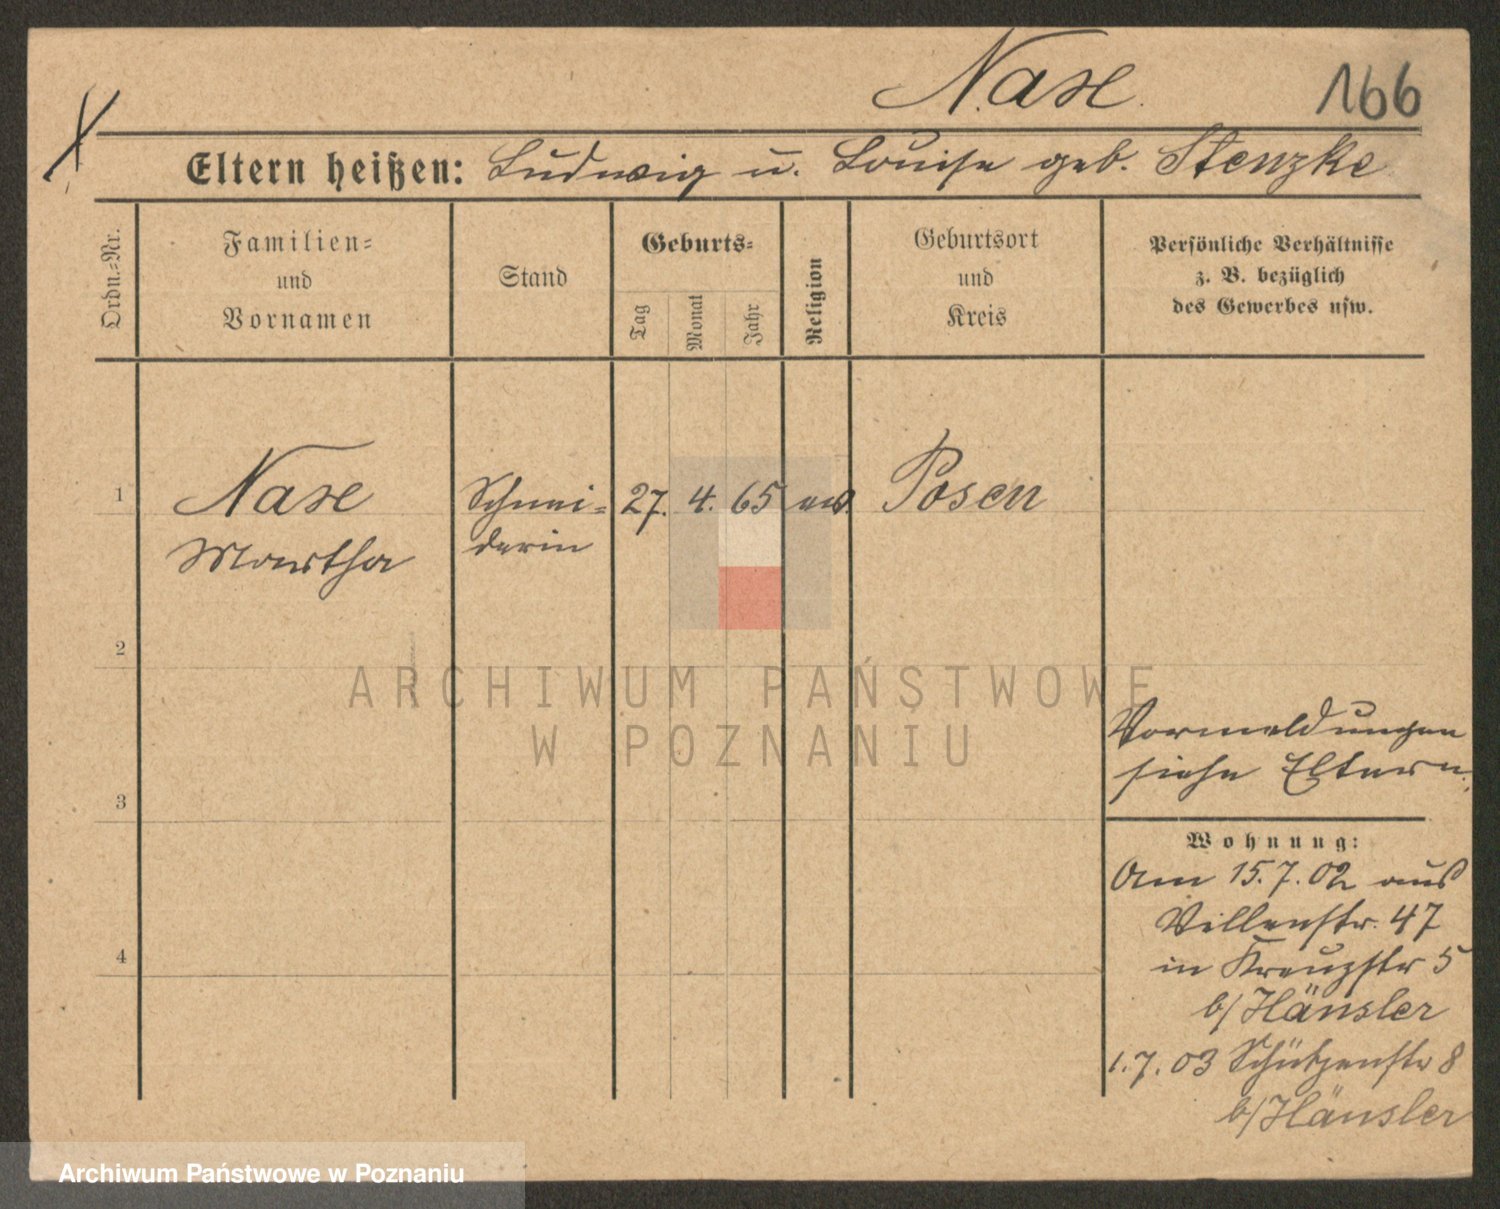 Nase.
166
Eltern heißen: Ludwig u. Louise geb. Stenzke
Ordn.=Nr.
Familien=
und
Vornamen
Stand
Geburts=
Tag
Monat
Jahr
Religion
Geburtsort
und
Kreis
Persönliche Verhältnisse
z. B. bezüglich
des Gewerbes usw.
1
Nase
Martha
Schnei=
derin
27. 4. 65
Posen
2
3
4
Vormeldungen
siehe Eltern.
Wohnung:
Am 15.7.02 aus
Villenstr. 47
in Kreuzstr 5
b/Hänsler
1.7.03 Schützenstr 8
b/Hänsler
ARCHIWUM PAŃSTWOWE
W POZNANIU
Archiwum Państwowe w Poznaniu